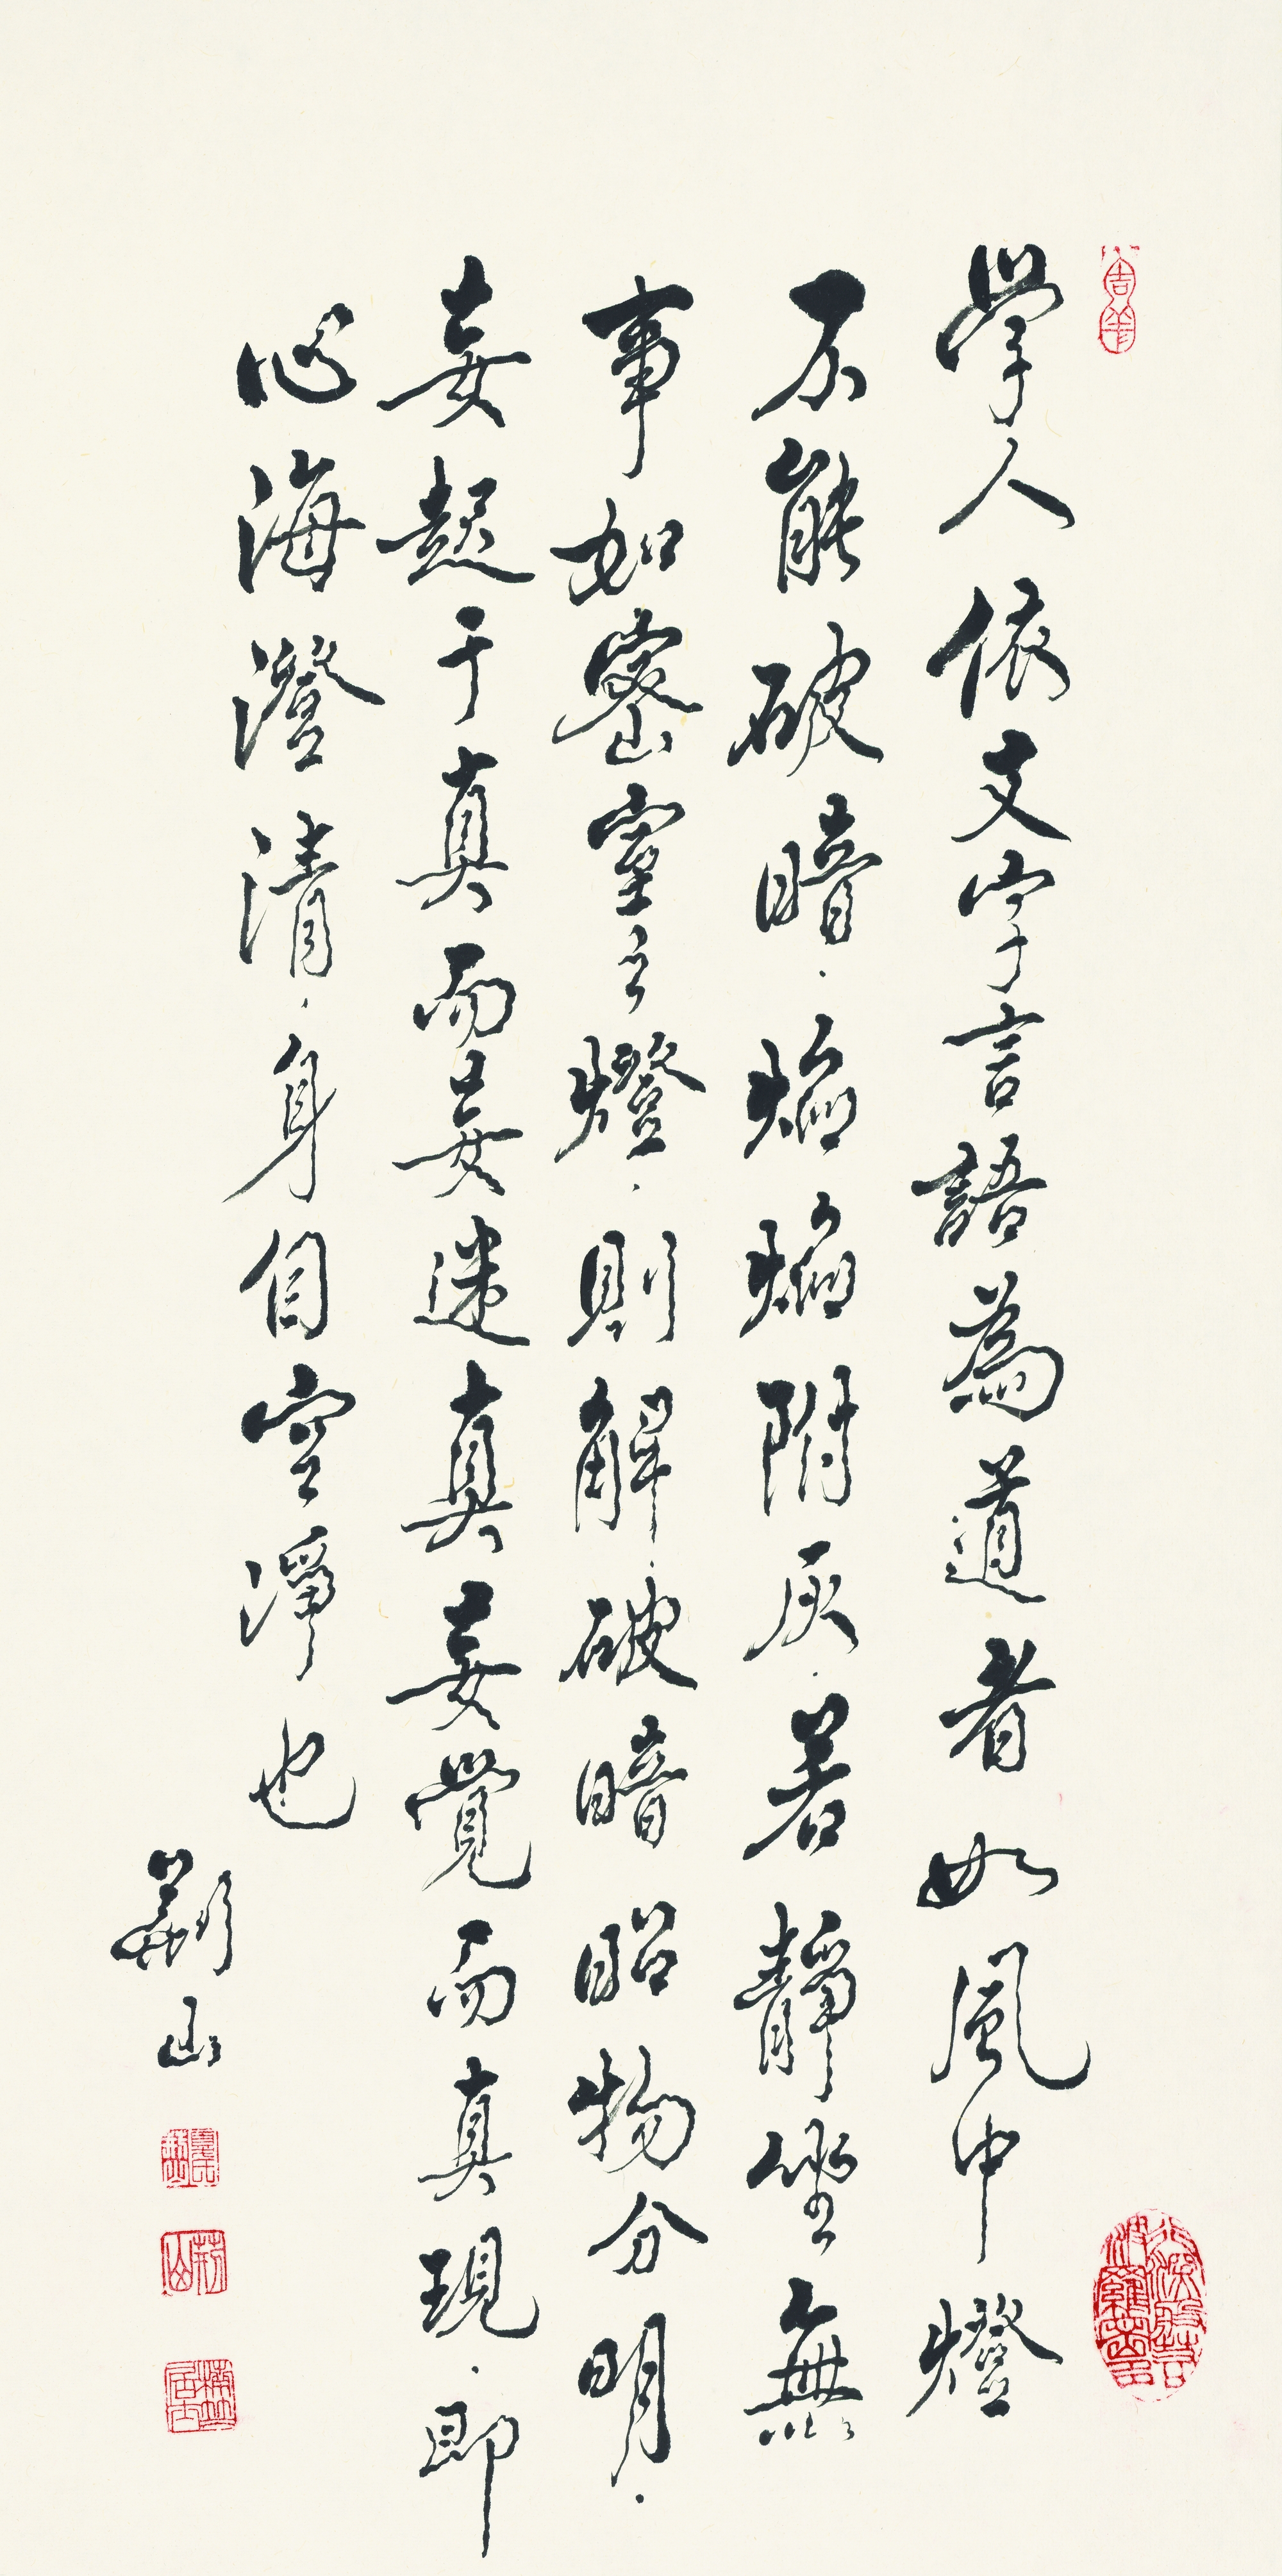 學人依文字言語為道者如風中燈
不能破暗·焰焰附灰·若靜坐無
事如密室之燈·則解破暗昭物分明·
妄起于真而妄迷真妄覺而真現·即
心海澄清·身自空淨也
山